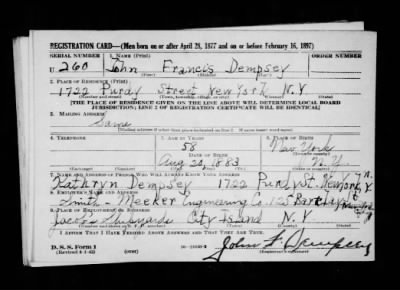 REGISTRATION CARD—(Men born on or after April 28, 1877 and on or before February 16, 1897)
SERIAL NUMBER 1. NAME (Print) ORDER NUMBER
U 260 John Francis Dempsey
(First) (Middle) (Last)
2. PLACE OF RESIDENCE (Print)
1722 Purdy Street New York N.Y
(Number and street) (Town, township, village, or city) (County) (State)
[THE PLACE OF RESIDENCE GIVEN ON THE LINE ABOVE WILL DETERMINE LOCAL BOARD
JURISDICTION; LINE 2 OF REGISTRATION CERTIFICATE WILL BE IDENTICAL]
3. MAILING ADDRESS
Same
[Mailing address if other than place indicated on line 2. If same insert word same]
4. TELEPHONE 5. AGE IN YEARS 6. PLACE OF BIRTH
58 New York
DATE OF BIRTH
Aug 20, 1883 N.Y.
7. NAME AND ADDRESS OF PERSON WHO WILL ALWAYS KNOW YOUR ADDRESS
Kathryn Dempsey 1722 Purdy St. New York N.Y.
8. EMPLOYER'S NAME AND ADDRESS
Smith-Meeker Engineering Co. 125 Barclay St
9. PLACE OF EMPLOYMENT OR BUSINESS
Jacobs Shipyards City Island N.Y.
(Number and street or R. F. D. number) (Town) (County) (State)
I AFFIRM THAT I HAVE VERIFIED ABOVE ANSWERS AND THAT THEY ARE TRUE.
D. S. S. Form 1
(Revised 4-1-42) (over)
John F. Dempsey